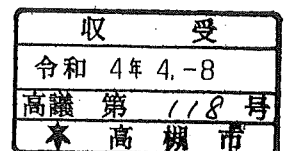 収 受
令和 4年 4.-8
高議 第 118 号
★ 高槻市